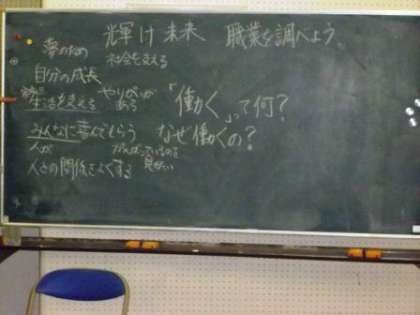 輝け未来 職業を調べよう
夢のため 社会を支える
自分の成長
生活を支える やりがいがある
「働く」って何?
みんなに喜んでもらう なぜ働くの?
人が がんばっているのを見たい
人との関係をよくする